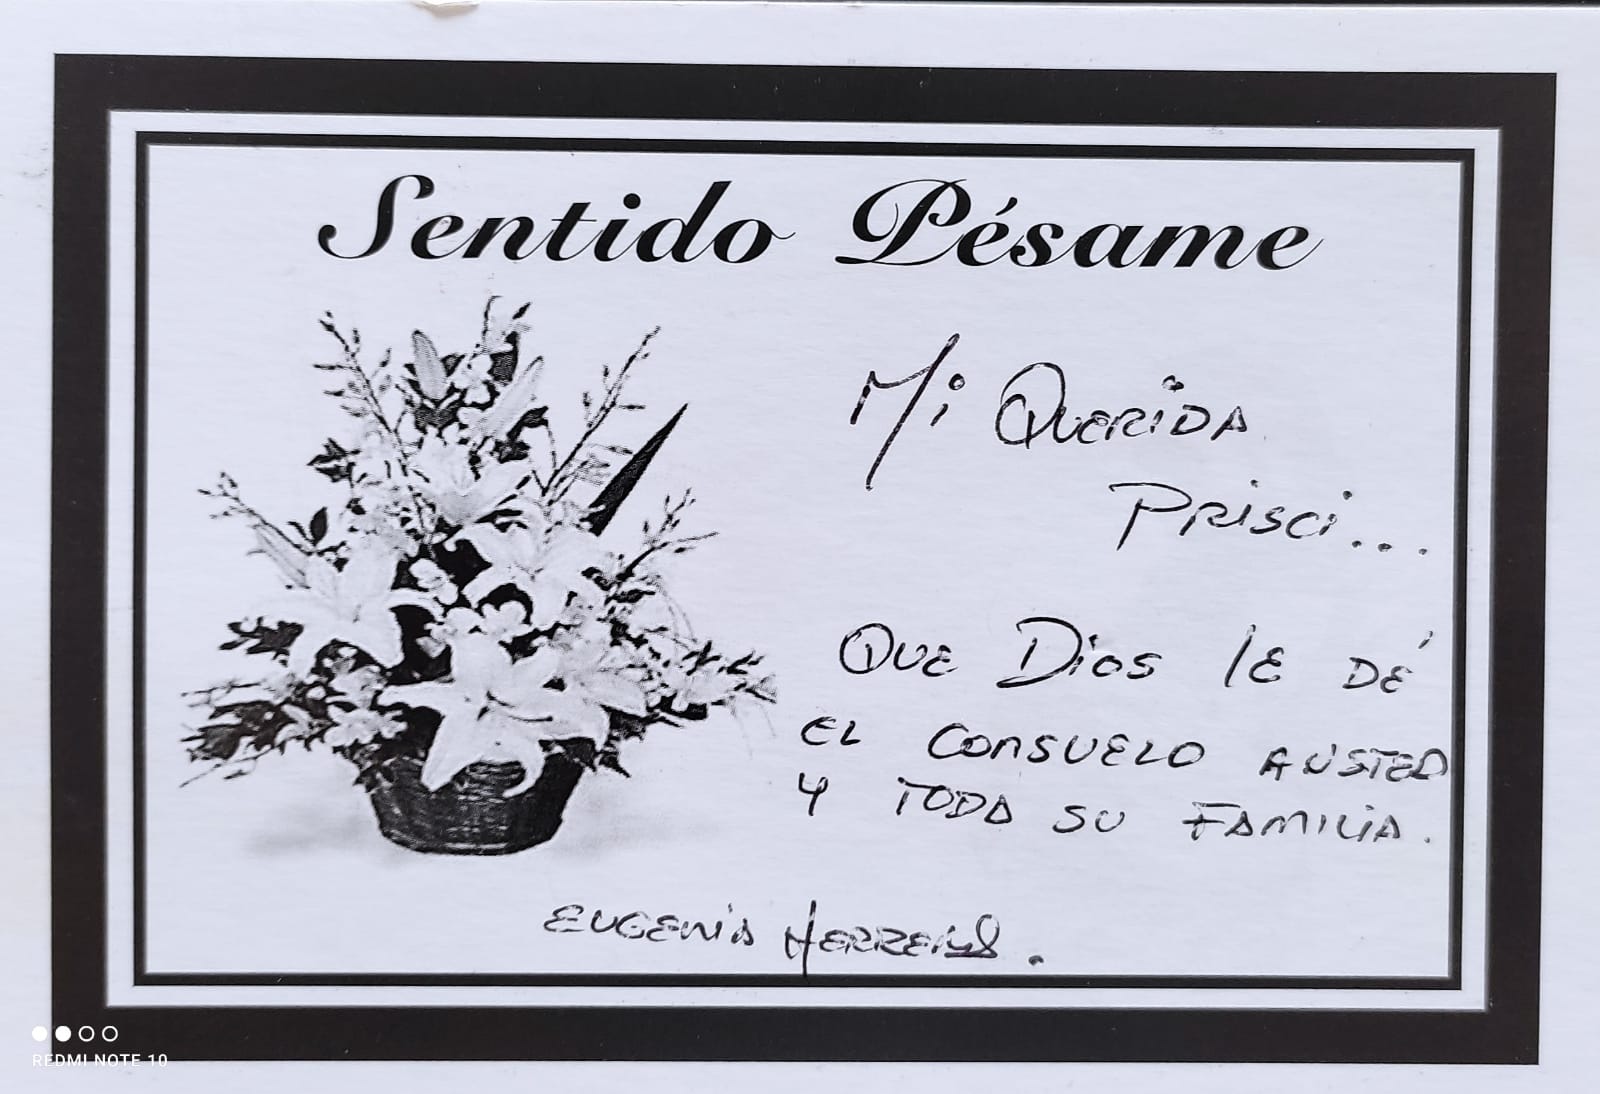 Sentido Pésame
Mi QUERIDA
PRisci...
QUE Dios lE DÉ
EL CONSUELO A USTED
Y TODA SU FAMILIA.
EUGENIA
REDMI NOTE 10